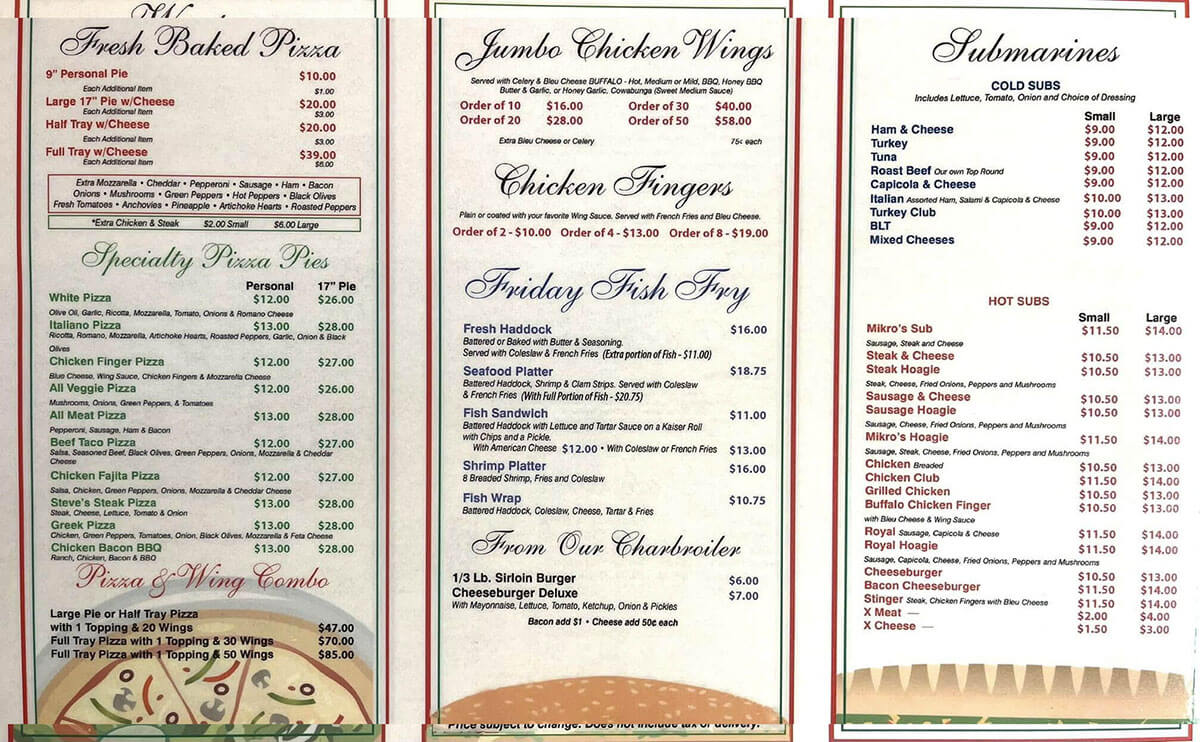 Fresh Baked Pizza
9" Personal Pie $10.00
Each Additional Item $1.00
Large 17" Pie w/Cheese $20.00
Each Additional Item $3.00
Half Tray w/Cheese $20.00
Each Additional Item $3.00
Full Tray w/Cheese $39.00
Each Additional Item $6.00
Extra Mozzarella • Cheddar • Pepperoni • Sausage • Ham • Bacon
Onions • Mushrooms • Green Peppers • Hot Peppers • Black Olives
Fresh Tomatoes • Anchovies • Pineapple • Artichoke Hearts • Roasted Peppers
*Extra Chicken & Steak $2.00 Small $6.00 Large
Specialty Pizza Pies
Personal 17" Pie
White Pizza $12.00 $26.00
Olive Oil, Garlic, Ricotta, Mozzarella, Tomato, Onions & Romano Cheese
Italiano Pizza $13.00 $28.00
Ricotta, Romano, Mozzarella, Artichoke Hearts, Roasted Peppers, Garlic, Onion & Black
Olives
Chicken Finger Pizza $12.00 $27.00
Blue Cheese, Wing Sauce, Chicken Fingers & Mozzarella Cheese
All Veggie Pizza $12.00 $26.00
Mushrooms, Onions, Green Peppers, & Tomatoes
All Meat Pizza $13.00 $28.00
Pepperoni, Sausage, Ham & Bacon
Beef Taco Pizza $12.00 $27.00
Salsa, Seasoned Beef, Black Olives, Green Peppers, Onions, Mozzarella & Cheddar
Cheese
Chicken Fajita Pizza $12.00 $27.00
Salsa, Chicken, Green Peppers, Onions, Mozzarella & Cheddar Cheese
Steve's Steak Pizza $13.00 $28.00
Steak, Cheese, Lettuce, Tomato & Onion
Greek Pizza $13.00 $28.00
Chicken, Green Peppers, Tomatoes, Onion, Black Olives, Mozzarella & Feta Cheese
Chicken Bacon BBQ $13.00 $28.00
Ranch, Chicken, Bacon & BBQ
Pizza & Wing Combo
Large Pie or Half Tray Pizza
with 1 Topping & 20 Wings $47.00
Full Tray Pizza with 1 Topping & 30 Wings $70.00
Full Tray Pizza with 1 Topping & 50 Wings $85.00
Jumbo Chicken Wings
Served with Celery & Bleu Cheese BUFFALO - Hot, Medium or Mild, BBQ, Honey BBQ
Butter & Garlic, or Honey Garlic, Cowabunga (Sweet Medium Sauce)
Order of 10 $16.00 Order of 30 $40.00
Order of 20 $28.00 Order of 50 $58.00
Extra Bleu Cheese or Celery 75¢ each
Chicken Fingers
Plain or coated with your favorite Wing Sauce. Served with French Fries and Bleu Cheese.
Order of 2 - $10.00 Order of 4 - $13.00 Order of 8 - $19.00
Friday Fish Fry
Fresh Haddock $16.00
Battered or Baked with Butter & Seasoning.
Served with Coleslaw & French Fries (Extra portion of Fish - $11.00)
Seafood Platter $18.75
Battered Haddock, Shrimp & Clam Strips. Served with Coleslaw
& French Fries (With Full Portion of Fish - $20.75)
Fish Sandwich $11.00
Battered Haddock with Lettuce and Tartar Sauce on a Kaiser Roll
with Chips and a Pickle.
With American Cheese $12.00 • With Coleslaw or French Fries $13.00
Shrimp Platter $16.00
8 Breaded Shrimp, Fries and Coleslaw
Fish Wrap $10.75
Battered Haddock, Coleslaw, Cheese, Tartar & Fries
From Our Charbroiler
1/3 Lb. Sirloin Burger $6.00
Cheeseburger Deluxe $7.00
With Mayonnaise, Lettuce, Tomato, Ketchup, Onion & Pickles
Bacon add $1 • Cheese add 50¢ each
Price subject to change. Does not include tax or delivery.
Submarines
COLD SUBS
Includes Lettuce, Tomato, Onion and Choice of Dressing
Small Large
Ham & Cheese $9.00 $12.00
Turkey $9.00 $12.00
Tuna $9.00 $12.00
Roast Beef Our own Top Round $9.00 $12.00
Capicola & Cheese $9.00 $12.00
Italian Assorted Ham, Salami & Capicola & Cheese $10.00 $13.00
Turkey Club $10.00 $13.00
BLT $9.00 $12.00
Mixed Cheeses $9.00 $12.00
HOT SUBS
Small Large
Mikro's Sub $11.50 $14.00
Sausage, Steak and Cheese
Steak & Cheese $10.50 $13.00
Steak Hoagie $10.50 $13.00
Steak, Cheese, Fried Onions, Peppers and Mushrooms
Sausage & Cheese $10.50 $13.00
Sausage Hoagie $10.50 $13.00
Sausage, Cheese, Fried Onions, Peppers and Mushrooms
Mikro's Hoagie $11.50 $14.00
Sausage, Steak, Cheese, Fried Onions, Peppers and Mushrooms
Chicken Breaded $10.50 $13.00
Chicken Club $11.50 $14.00
Grilled Chicken $10.50 $13.00
Buffalo Chicken Finger $10.50 $13.00
with Bleu Cheese & Wing Sauce
Royal Sausage, Capicola & Cheese $11.50 $14.00
Royal Hoagie $11.50 $14.00
Sausage, Capicola, Cheese, Fried Onions, Peppers and Mushrooms
Cheeseburger $10.50 $13.00
Bacon Cheeseburger $11.50 $14.00
Stinger Steak, Chicken Fingers with Bleu Cheese $11.50 $14.00
X Meat — $2.00 $4.00
X Cheese — $1.50 $3.00